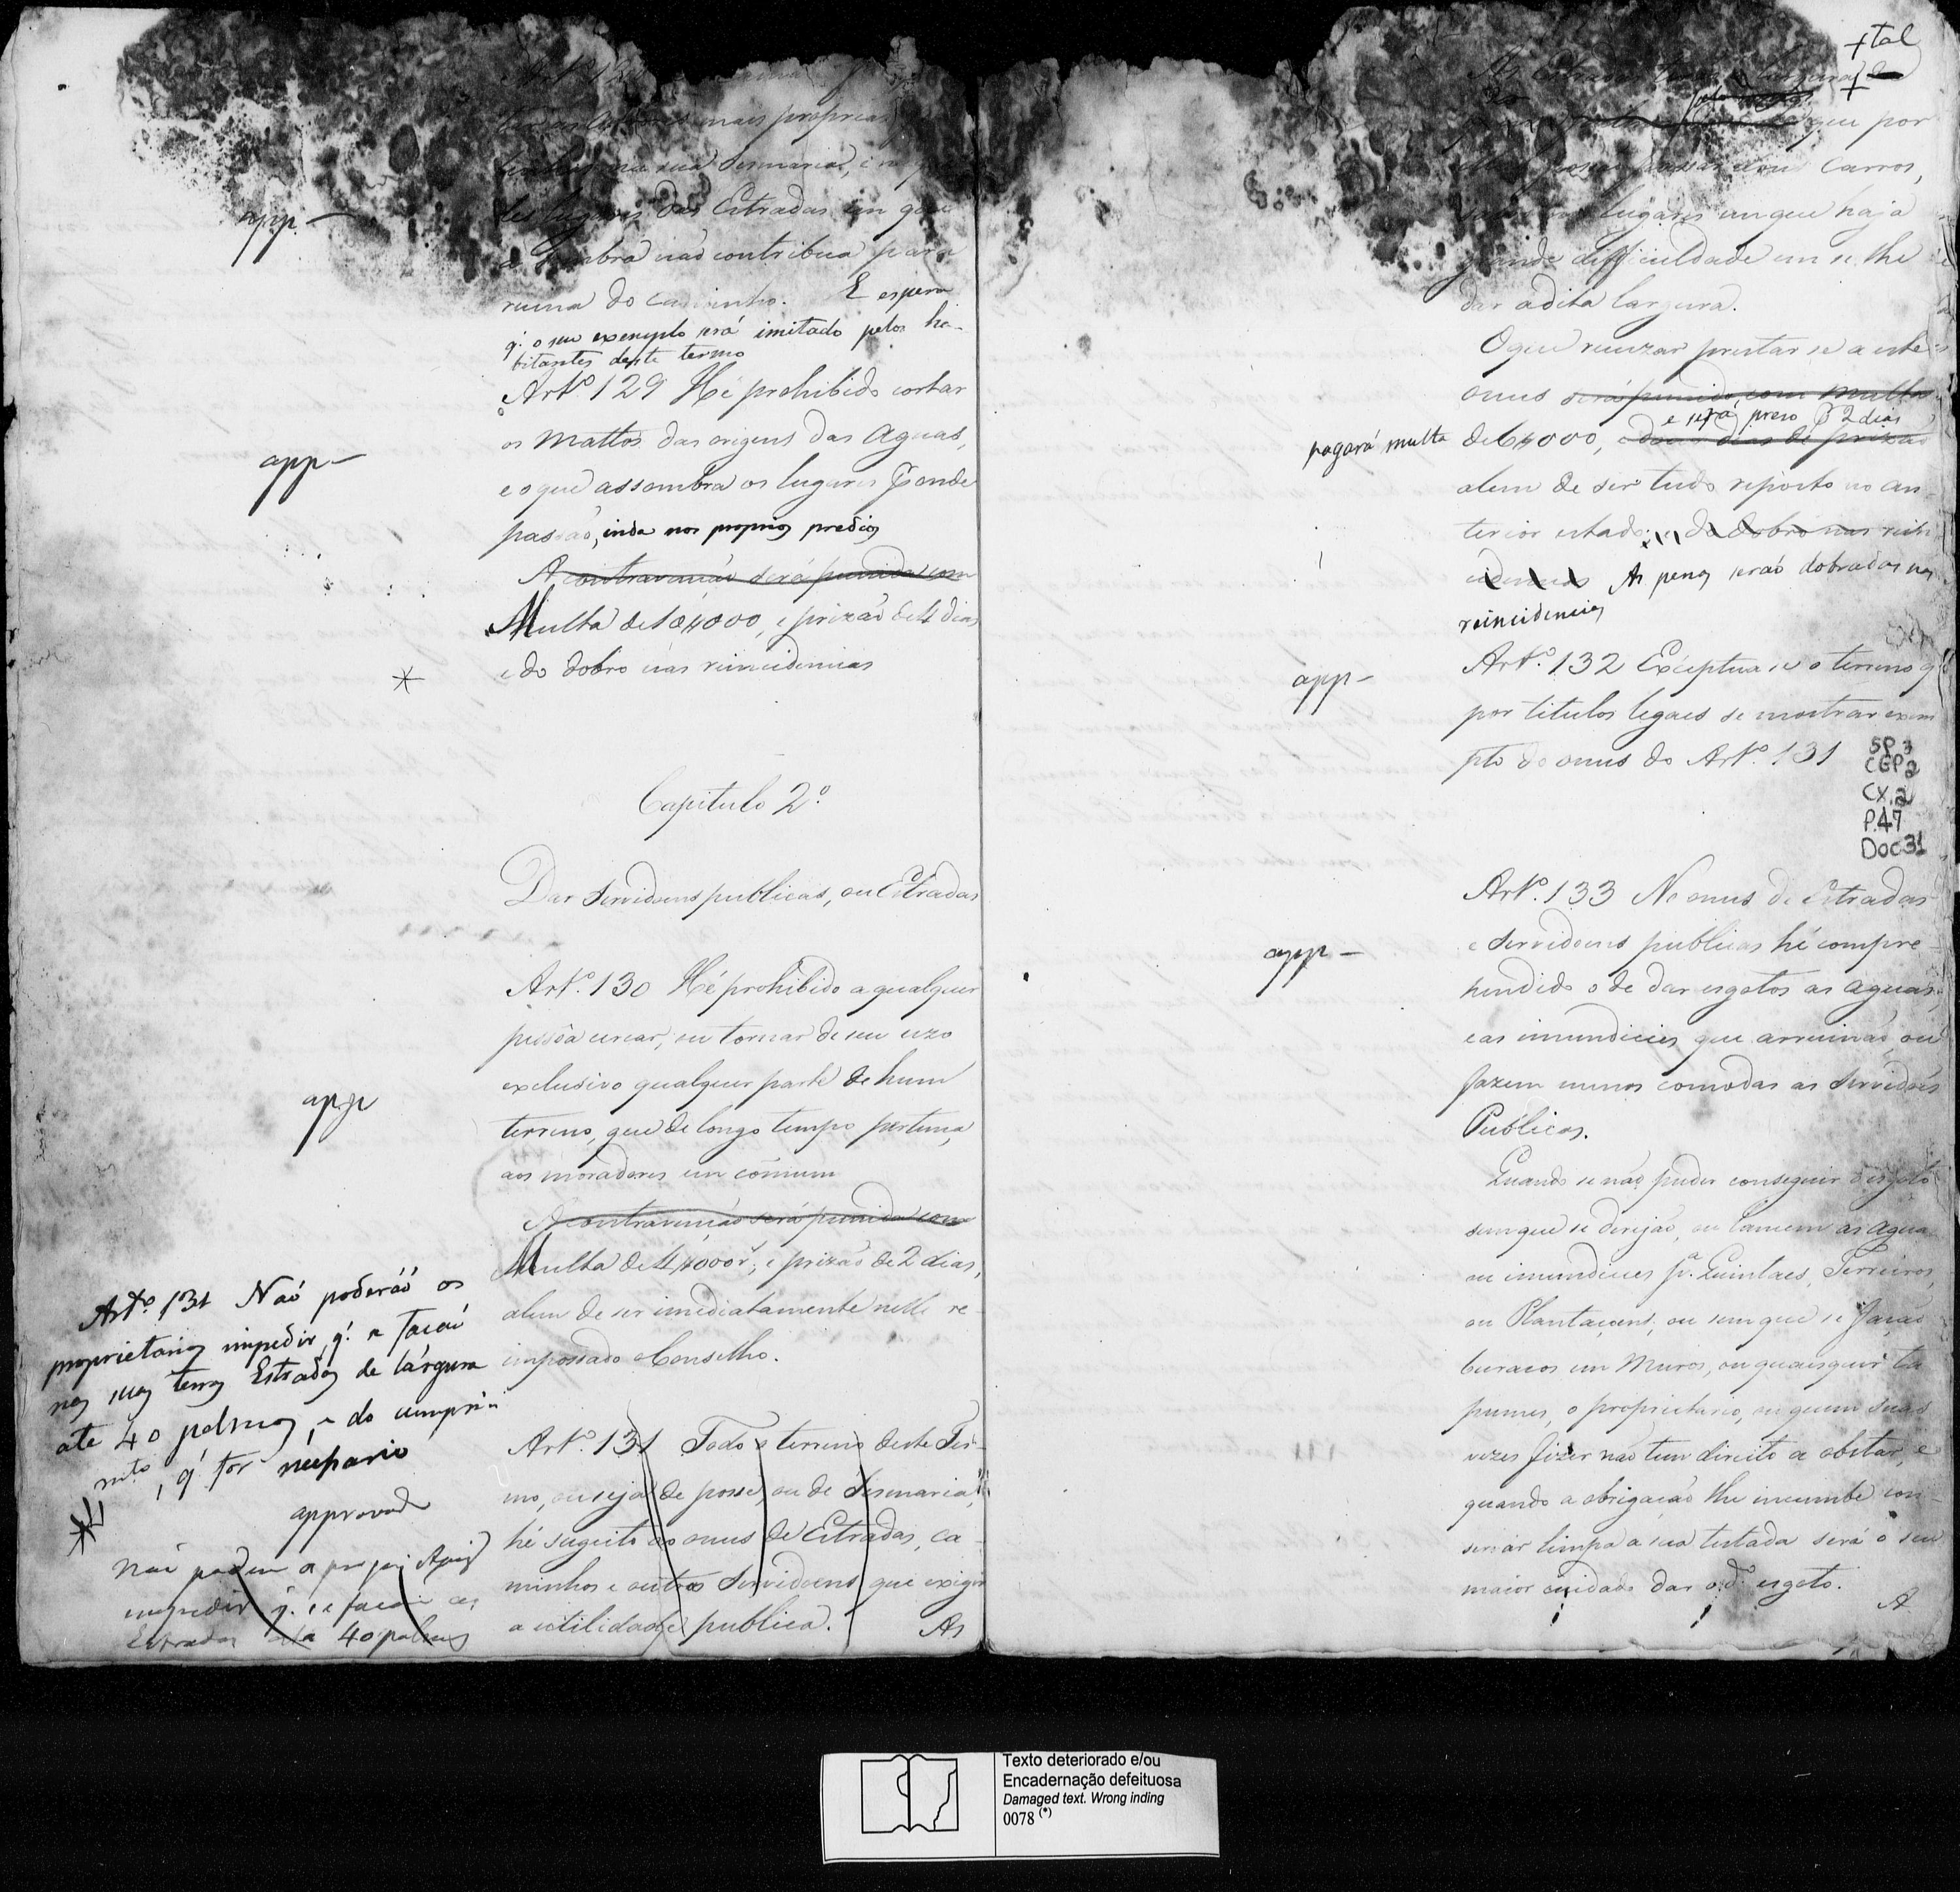 mais proprias
na sua Sesmaria, e na
lugares das Estradas em que
a sombra não contribua para
app -
ruina do caminho. E espera
q. o seu exemplo será imitado pelos ha-
bitantes deste termo
Artº 129 Hé prohibido cortar
os Mattos das origens das Aguas,
app -
e o que assombra os lugares P onde
passão, inda nos proprios predios
A contravenção será punida com
Multa de 10$000, e prizão de 4 dias
e do dobro nas reincidencias
*
Capitulo 2º
Das Servidoens publicas, ou Estradas
Artº. 130 Hé prohibido a qualquer
pessôa cercar, ou tornar de seu uzo
exclusivo qualquer parte de hum
app
terreno, que de longo tempo pertença
aos moradores em cõmum
A contravenção será punida com
Multa de 4$000 r, e prizão de 2 dias,
alem de ser imediatamente nelle re-
impossado o Conselho.
Artº. 131 Todo o terreno deste Ter-
mo, ou seja de posse, ou de Sesmaria,
hé sugeito ao onus de Estradas, ca-
minhos e outras Servidoens que exigir
a utilidade publica.
As
Artº 131 Naõ poderáõ os
proprietarios impedir, q. se facaõ
nas suas terras Estradas de lárgura
ate 40 palmos, e do cumpri-
mto, q. for necessario
approvado
*
Não podem os
impedir q. se facaõ as
Estradas até 40 palmos
+ tal
As estradas terão largura
+
que por
possão passar dous Carros,
lugares em que haja
grande difficuldade em se lhe
dar a dita largura.
O que recuzar prestar se a este
onus será punido com multa
e será preso P 2 dias
pagará multa de 6$000, e dous dias de prizão
alem de ser tudo reposto no an-
terior estado; e do dobro nas rein
cidencias As penas seraõ dobradas nas
reincidencias
app -
Artº. 132 Exceptua se o terreno q
por titulos legaes se mostrar exem
pto do onus do Artº. 131
SP.3
CGP2
CX.2
P.47
Doc31
Artº. 133 No onus de Estradas
e Servidoens publicas hé compre-
app -
hendido o de dar esgotos as aguas,
e as imundicies que arruinaõ, ou
fazem menos comodas as Servidões
Publicas.
Quando se não puder conseguir o esgoto
sem que se dirijão, ou lancem as aguas
ou imundicies pª. Quintaes, Terreiros,
ou Plantaçoens, ou sem que se façaõ
buracos em Muros, ou quaesquer ta
pumes, o proprietario, ou quem suas
vezes fizer não tem direito a obstar, e
quando a obrigação lhe incumbe con-
servar limpa a sua testada será o seu
maior cuidado dar o dº esgoto.
A
Texto deteriorado e/ou
Encadernação defeituosa
Damaged text. Wrong inding
0078 (*)